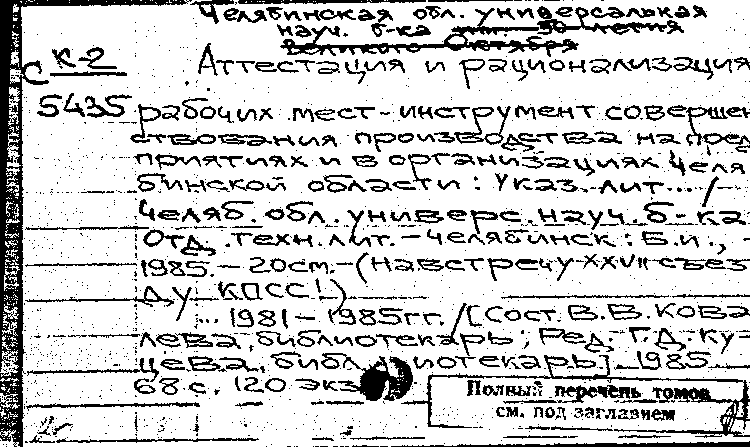 Челябинская обл. универсальная
науч. б-ка им. 50-летия
Великого Октября
К-2
С
Аттестация и рационализация
5435 рабочих мест-инструмент совершен
ствования производства на пред
приятиях и в организациях Челя
бинской области: Указ. лит... /
Челяб. обл. универс. науч. б-ка
Отд. техн. лит. - Челябинск: Б.и., -
1985. - 20см. - (Навстречу XXVII съез
ду КПСС!)
... 1981-1985гг. /[Сост. В.В. Кова
лева, библиотекарь; Ред. Г.Д. Ку-
цева, библиотекарь]. 1985
68 с. 120 экз
Полный перечень томов
см. под заглавием